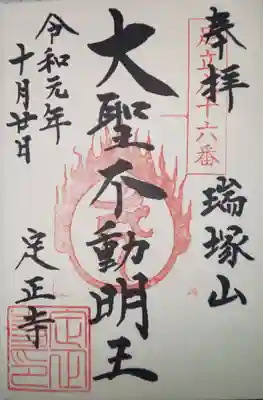 奉拝
十六番
瑞塚山
大聖不動明王
令和元年
十月廿日
定正寺